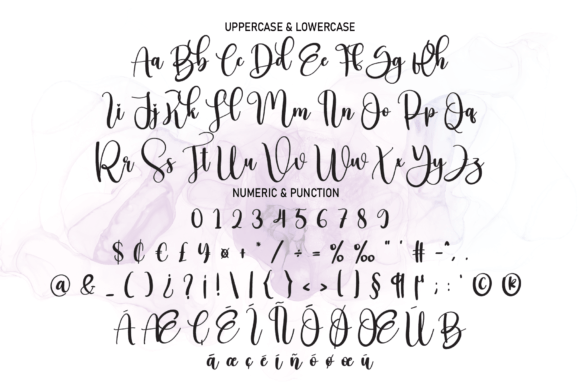 UPPERCASE & LOWERCASE
Aa Bb Cc Dd Ee Ff Gg Hh
Ii Jj Kk Ll Mm Nn Oo Pp Qq
Rr Ss Tt Uu Vv Ww Xx Yy Zz
NUMERIC & PUNCTION
0 1 2 3 4 5 6 7 8 9
$ ₵ € £ ¥ ¤ + * / ÷ = % ‰ " ' # - ~ , .
@ & _ ( ) ¿ ? ¡ ! \ | { } < > [ ] § ¶ µ ; : ' © ®
Á Æ Ç É Í Ñ Ó Ø Œ Ú ß
á æ ç é í ñ ó ø œ ú